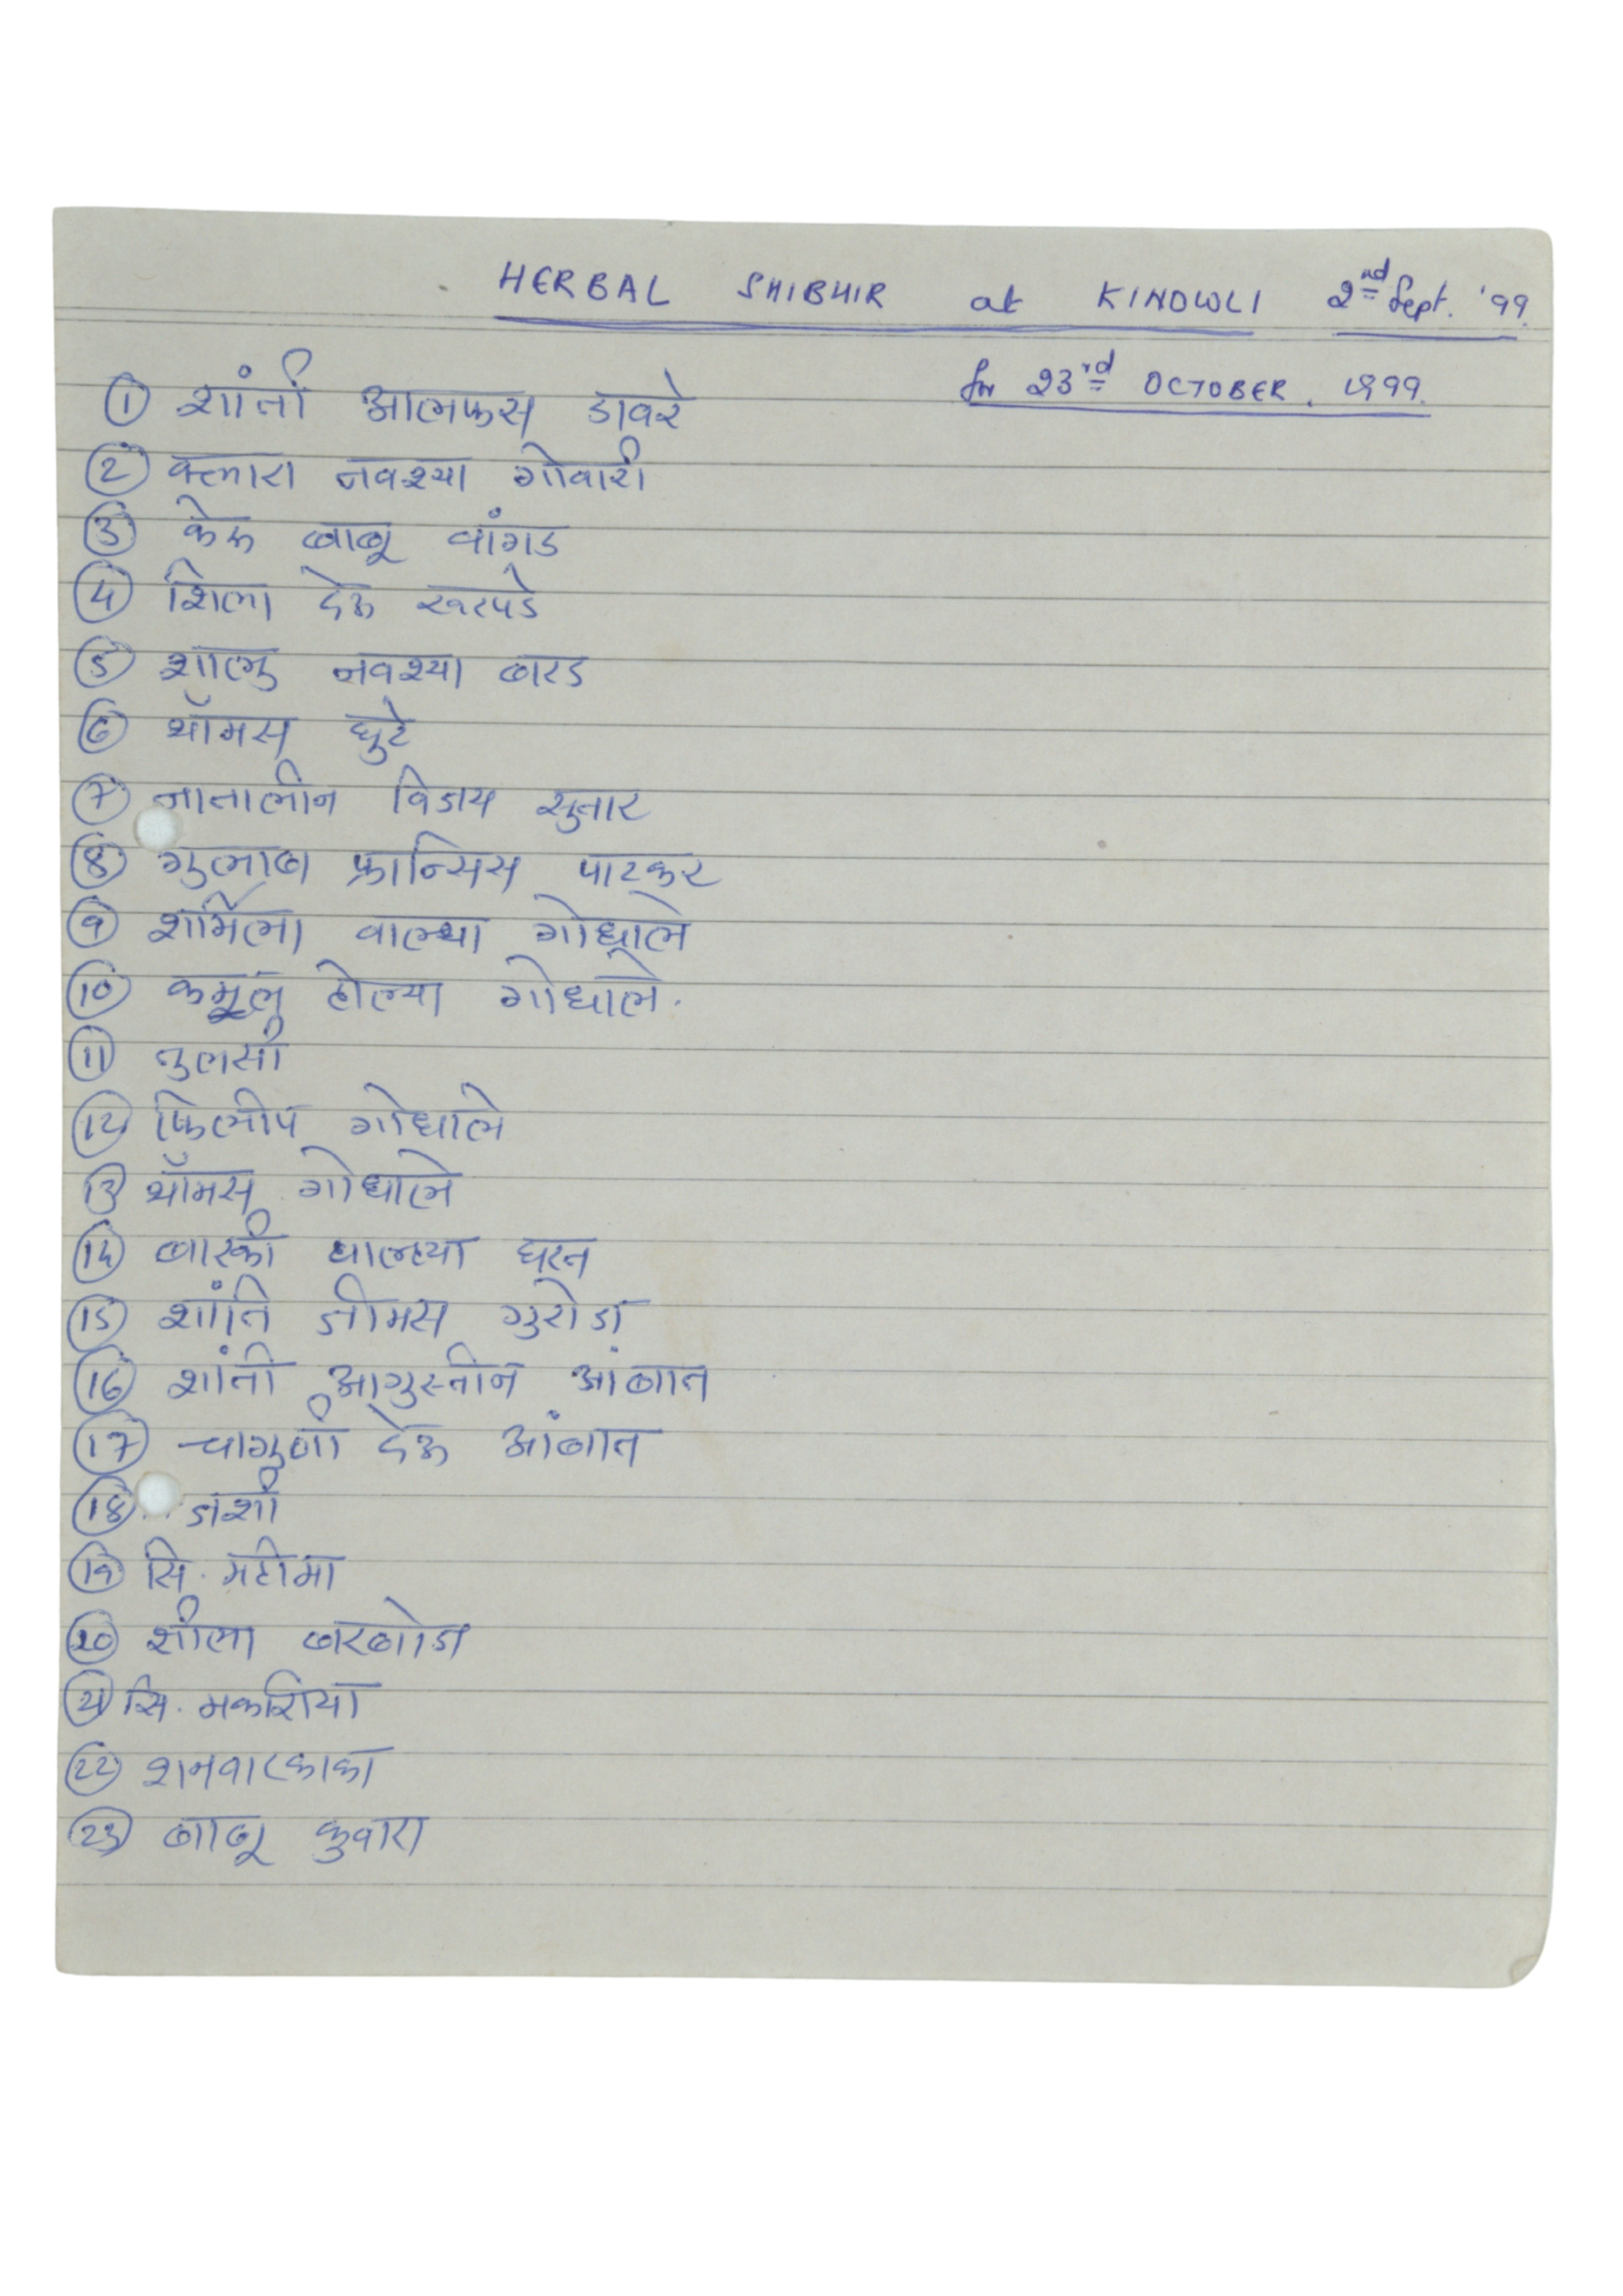 HERBAL SHIBHIR at KINDWLI 2nd Sept. '99.
for 23rd OCTOBER, 1999.
① शांती आलफस डावरे
② क्लारा नवश्या गोवारी
③ केरू बाबू वांगड
④ शिला देऊ खरपडे
⑤ शालु नवश्या बारड
⑥ थॉमस घुटे
⑦ नातालीन विजय सुतार
⑧ गुलाब फ्रान्सिस पाटकर
⑨ शर्मिला वाल्या गोधाले
⑩ कमूलू होल्या गोधाले.
⑪ तुलसी
⑫ फिलीप गोधाले
⑬ थॉमस गोधाले
⑭ बारकी घाल्या घरत
⑮ शांति जीमस गुरोडा
⑯ शांती आगुस्तीन आंबात
⑰ चागुणी देऊ आंबात
⑱ जशी
⑲ सि. महीमा
⑳ शीला बरबोज
㉑ सि. मकरिया
㉒ शनवारकाका
㉓ बाबू कुवारा